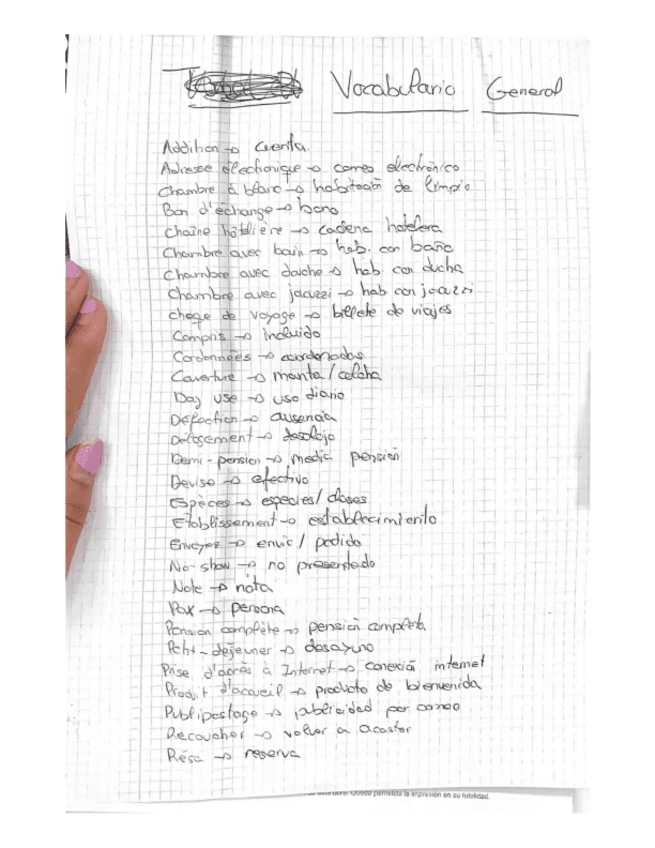 Vocabulario General
Addition → cuenta.
Adresse électronique → correo electrónico
Chambre à blanc → habitación de limpio
Bon d'échange → bono
Chaîne hôtelière → cadena hotelera
Chambre avec bain → hab. con baño
Chambre avec douche → hab con ducha
Chambre avec jacuzzi → hab con jacuzzi
cheqe de voyage → billete de viajes
Compris → incluido
Cordonnées → coordenadas
Couverture → manta/colcha
Day use → uso diario
Défection → ausencia
Délogement → desalojo
Demi-pension → media pensión
Devise → efectivo
Espèces → especies/clases
Etablissement → establecimiento
Envoyez → envio/pedido
No-show → no presentado
Note → nota
Pax → persona
Pension complète → pensión completa
Petit-dejeuner → desayuno
Prise d'accès à Internet → conexión internet
Produit d'accueil → producto de bienvenida
Publipostage → publicidad por correo
Recoucher → volver a acostar
Résa → reserva
Queda permitida la impresión en su totalidad.